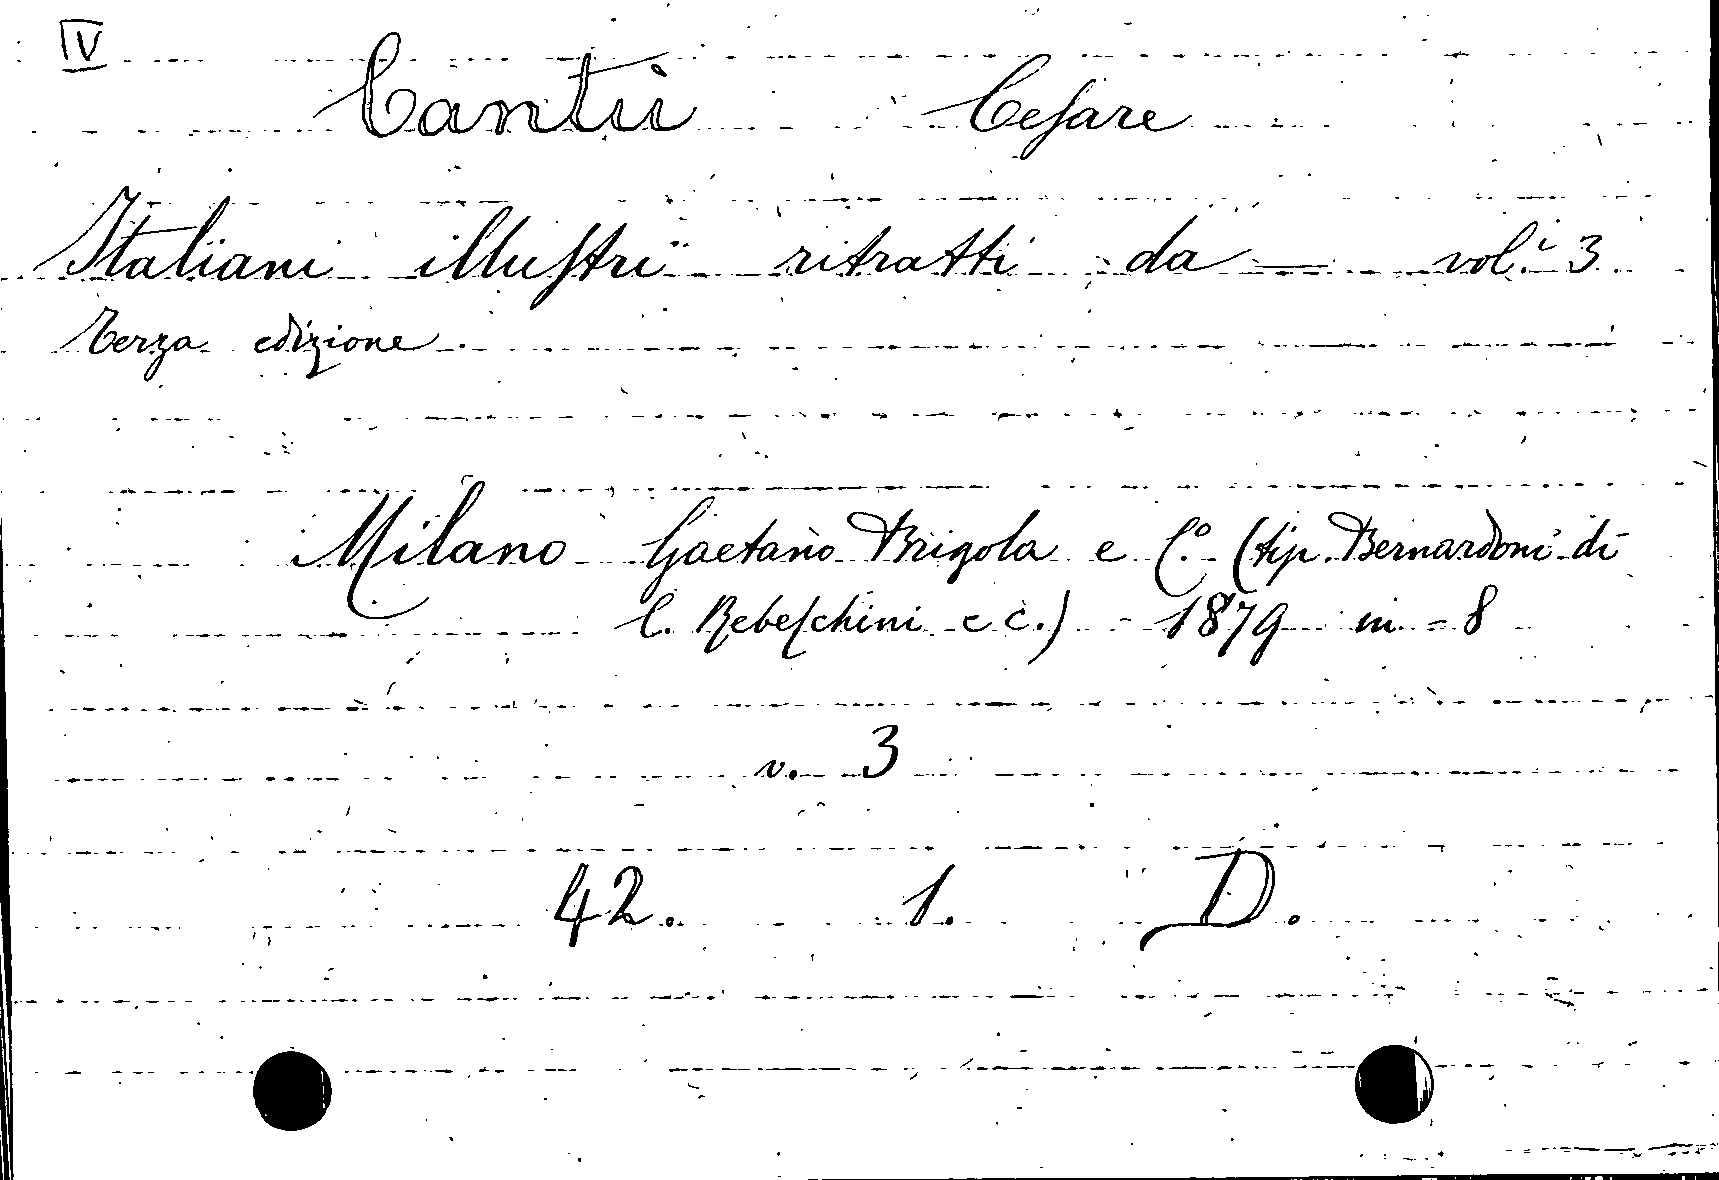 IV
Cantù Cesare
Italiani illustri ritratti da — vol.i 3
Terza edizione
Milano Gaetano Brigola e C.o (tip. Bernardoni di
C. Rebeschini e C.) 1879 in-8
v. 3
42. 1. D.